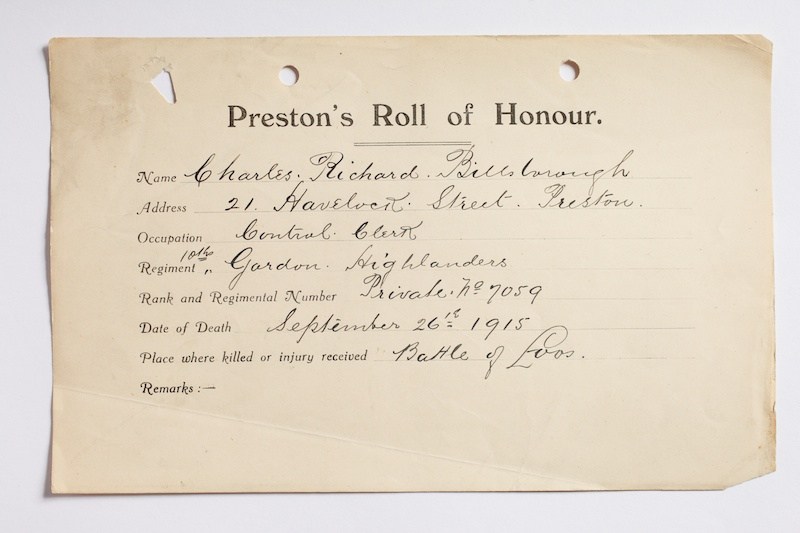 Preston's Roll of Honour.
Name Charles. Richard. Billsborough
Address 21. Havelock. Street. Preston.
Occupation Control. Clerk
Regiment 10th „ Gordon. Highlanders
Rank and Regimental Number Private. No 7059
Date of Death September 26th 1915
Place where killed or injury received Battle of Loos.
Remarks :—